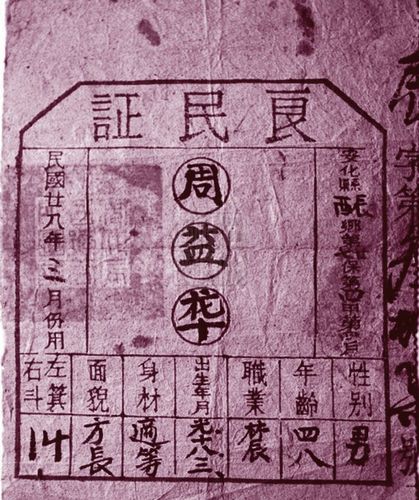 良民証
安化縣
鄉第保第四甲第戶
周益
民國廿九年三月份用
性別
男
年齡
四八
職業
農
出生年月
光十八三
身材
適等
面貌
方長
左箕
右斗